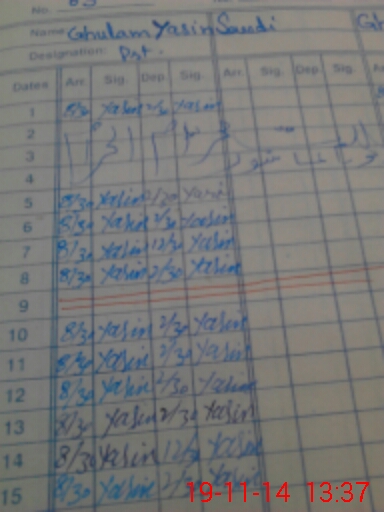 No.
Name Ghulam Yasin Saudi
Designation: Pst.
Dates Arr. Sig. Dep. Sig. Arr. Sig. Dep. Sig.
1 8/30 Yasin 2/30 Yasin
2
3
4
5 8/30 Yasin 2/30 Yasin
6 8/30 Yasin 2/30 Yasin
7 8/30 Yasin 12/30 Yasin
8 8/30 Yasin 2/30 Yasin
9
10 8/30 Yasin 2/30 Yasin
11 8/30 Yasin 2/30 Yasin
12 8/30 Yasin 2/30 Yasin
13 8/30 Yasin 2/30 Yasin
14 8/30 Yasin 12/30 Yasin
15 8/30 Yasin 2/30 Yasin
19-11-14 13:37